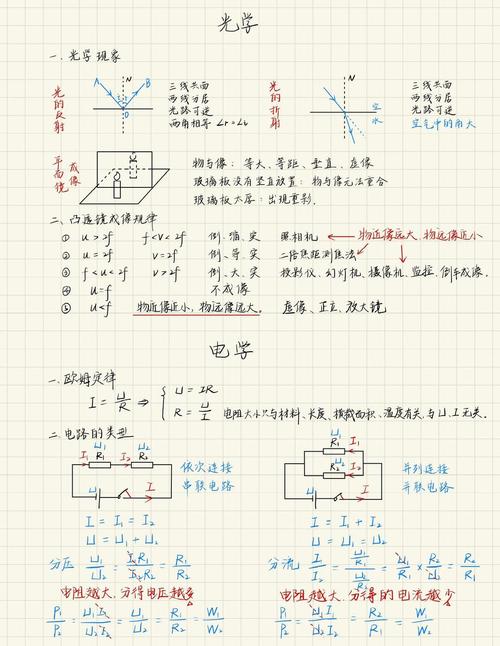 光学
一. 光学现象
光的反射
A N B
O
三线共面
两线分居
光路可逆
两角相等 ∠r=∠i
光的折射
N
空
水
三线共面
两线分居
光路可逆
空气中的角大
平面镜成像
物与像: 等大、等距、垂直、虚像
玻璃板没有竖直放置: 物与像无法重合
玻璃板太厚: 出现重影.
二. 凸透镜成像规律
① u>2f f<v<2f 倒、缩、实 照相机 ← 物近像远大、物远像近小
② u=2f v=2f 倒、等、实 二倍焦距测焦法
③ f<u<2f v>2f 倒、大、实 投影仪、幻灯机、摄像机、监控、倒车成像.
④ u=f 不成像
⑤ u<f 物近像近小, 物远像远大. 虚像、正立、放大镜
电学
一. 欧姆定律
I = U/R ⇒ { U = IR
R = U/I 电阻大小只与材料、长度、横截面积、温度有关, 与U、I无关.
二. 电路的类型
U₁ U₂
I₁ R₁ I₂ R₂
U I
依次连接
串联电路
I = I₁ = I₂
U = U₁ + U₂
分压 U₁/U₂ = I₁R₁/I₂R₂ = R₁/R₂
电阻越大, 分得电压越多
P₁/P₂ = U₁I₁/U₂I₂ = U₁/U₂ = R₁/R₂ = W₁/W₂
U₁
R₁ I₁
U₂
R₂ I₂
U I
并列连接
并联电路
I = I₁ + I₂
U = U₁ = U₂
分流 I₁/I₂ = U₁/R₁ / U₂/R₂ = U₁/R₁ × R₂/U₂ = R₂/R₁
电阻越大, 分得的电流越少